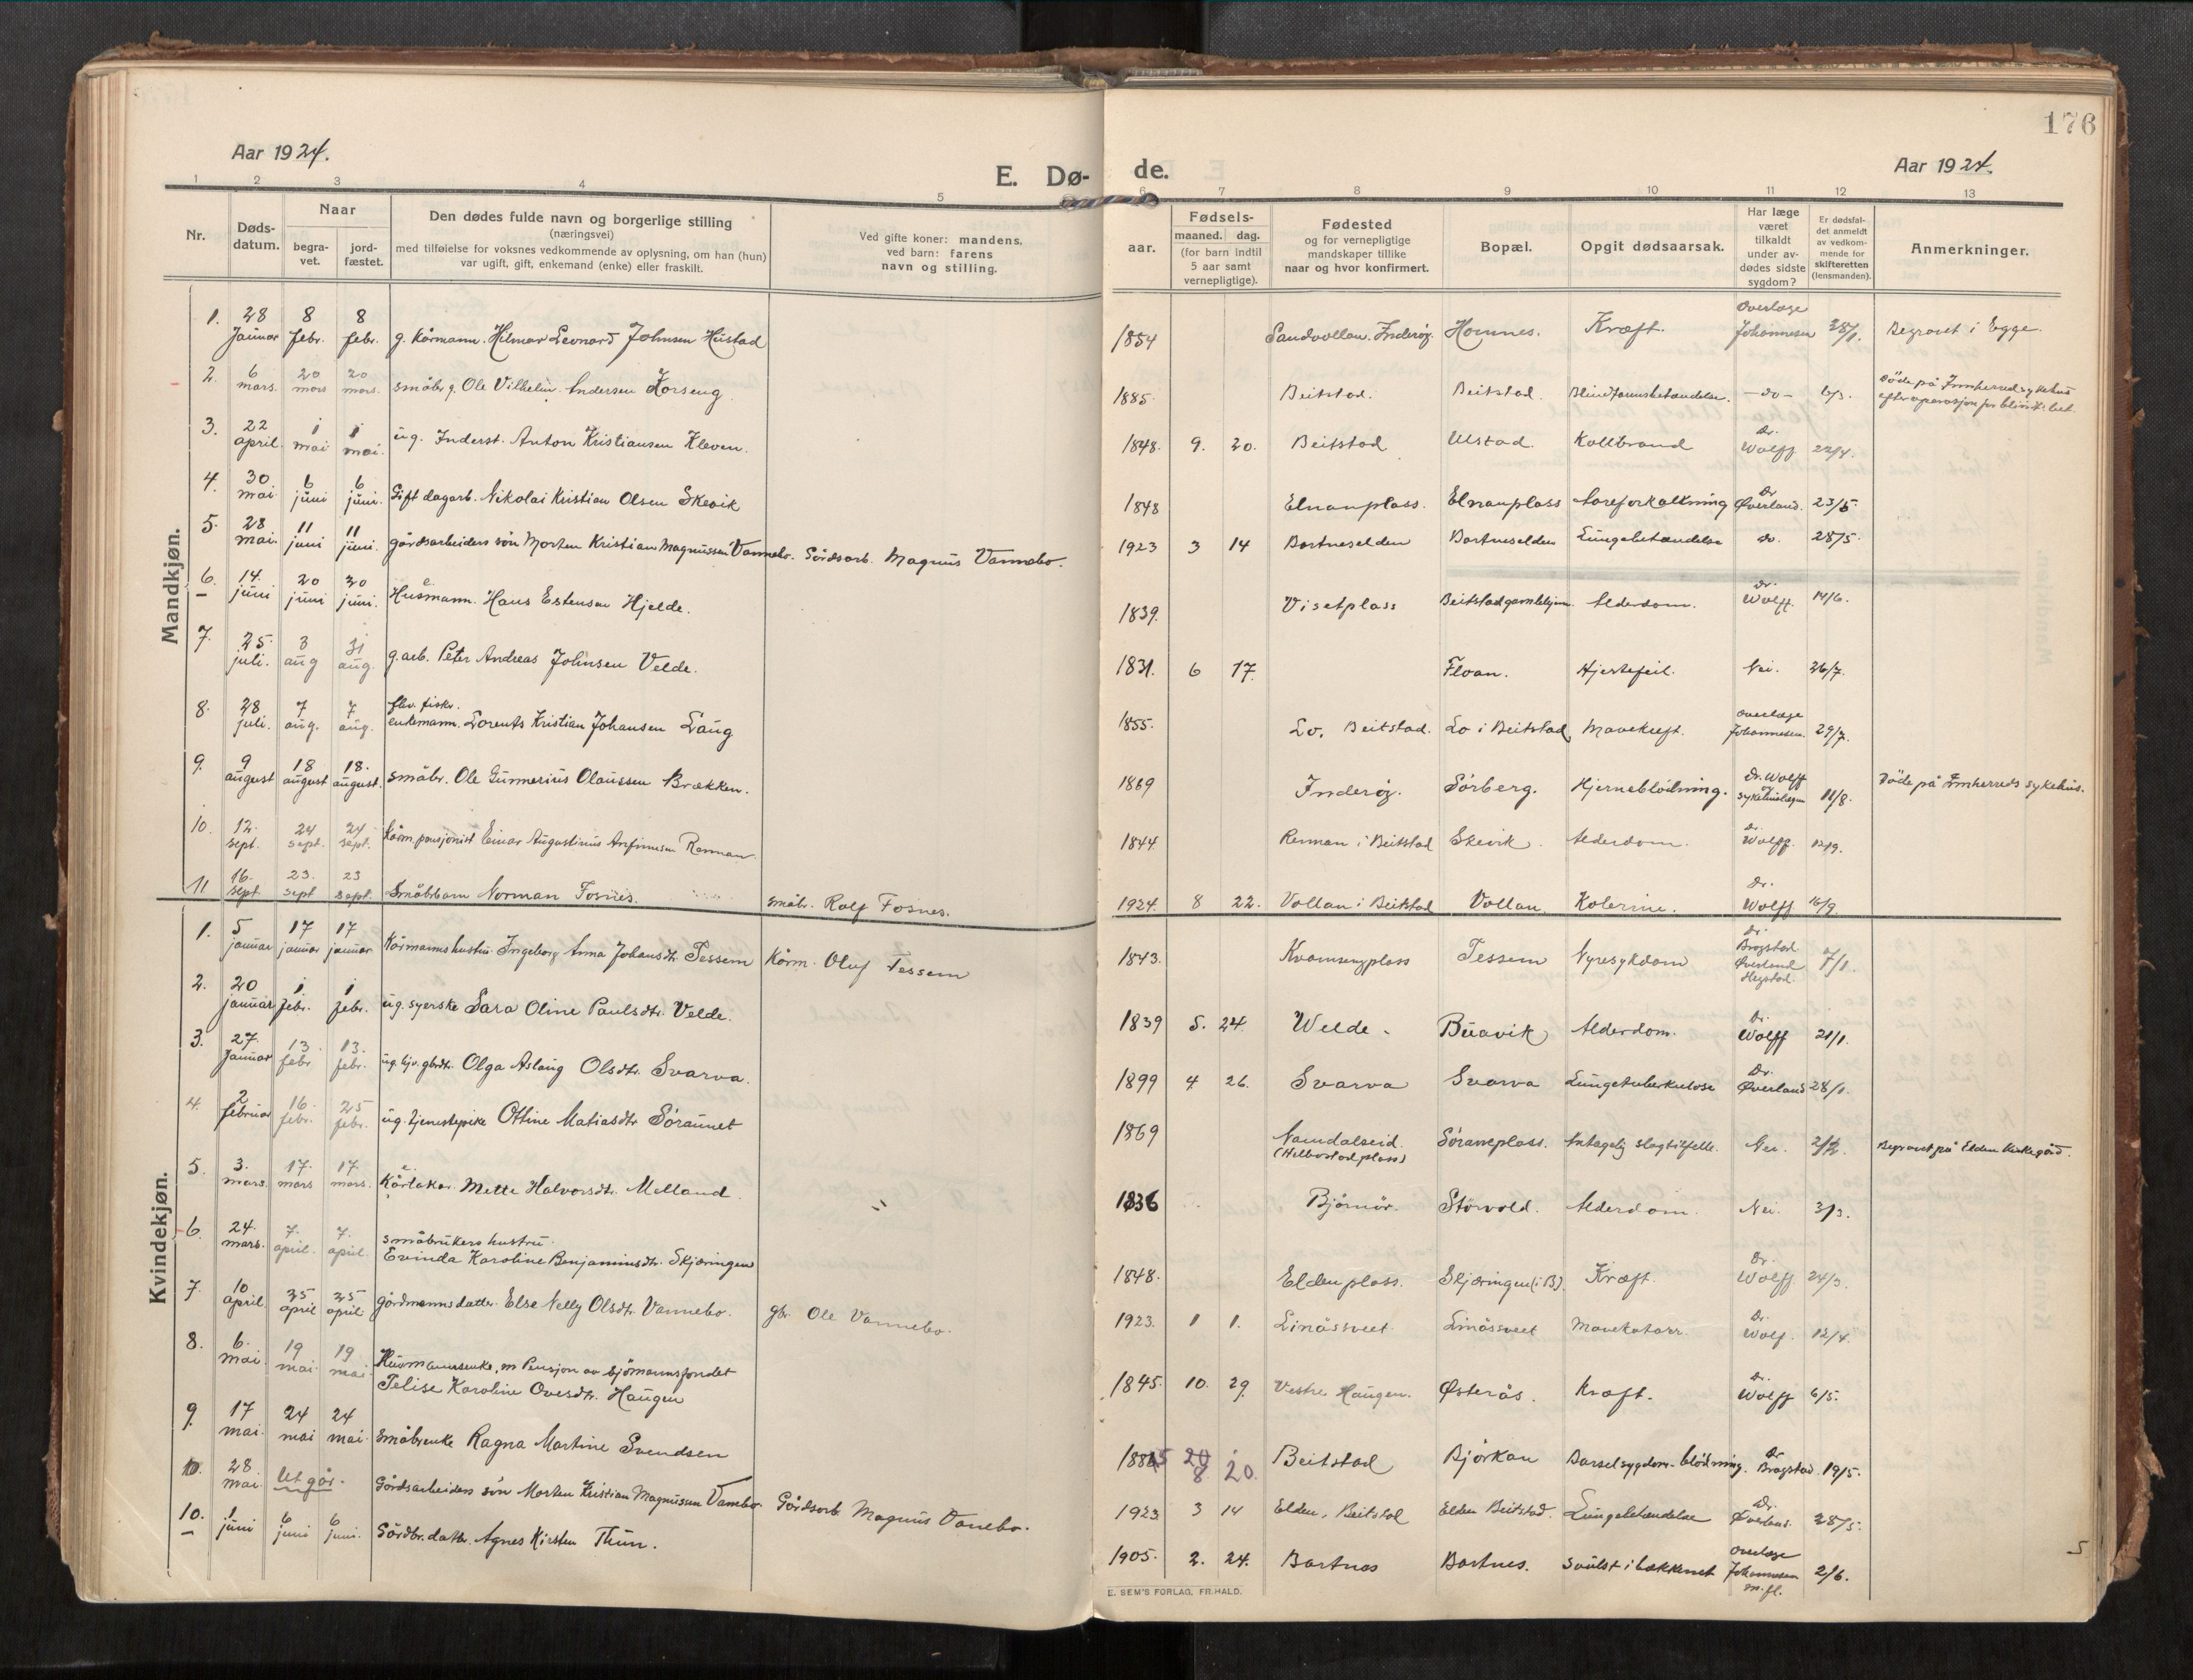 176
Aar 1924.
E. Dø-
de.
Aar 1924.
1 2 3 4 5 6 7 8 9 10 11 12 13
Nr.
Døds-
datum.
Naar
begra-
vet.
jord-
fæstet.
Den dødes fulde navn og borgerlige stilling
(næringsvei)
med tilføielse for voksnes vedkommende av oplysning, om han (hun)
var ugift, gift, enkemand (enke) eller fraskilt.
Ved gifte koner: mandens,
ved barn: farens
navn og stilling.
aar.
Fødsels-
maaned. dag.
(for barn indtil
5 aar samt
vernepligtige).
Fødested
og for vernepligtige
mandskaper tillike
naar og hvor konfirmert.
Bopæl.
Opgit dødsaarsak.
Har læge
været
tilkaldt
under av-
dødes sidste
sygdom?
Er dødsfal-
det anmeldt
av vedkom-
mende for
skifteretten
(lensmanden).
Anmerkninger.
Mandkjøn.
1. 28 Januar 8 febr. 8 febr. g. Kårmann. Hilmar Leonard Johnsen Hustad 1854 Sandvollan. Inderøy. Homnes. Kræft. Overlæge Johannesen 28/1. Begravet i Egge.
2. 6 mars. 20 mars 20 mars. småbr. g. Ole Vilhelm Andersen Korseng. 1885. Beitstad. Beitstad. Blindtarmsbetændelse. —do— 6/3. Döde på Innherred sykehus
efter operasjon for blindt. bet.
3. 22 april. 1 mai 1 mai. ug. Inderst. Anton Kristiansen Kleven. 1848. 9. 20. Beitstad Ulstad. Koldbrand Dr. Wolff 22/4.
4. 30 mai 6 juni 6 juni. Gift dagarb. Nikolai Kristian Olsen Skevik 1848 Elnanplass. Elnanplass Aareforkalkning Dr Øverland. 23/5.
5. 28 mai. 11 juni 11 juni. gårdsarbeiders sön Morten Kristian Magnussen Vannebo. Gårdsarb. Magnus Vannebo. 1923 3 14 Bartneselden Bartneselden Lungebetændelse do. 28/5.
6. 14. juni 20 juni 20 juni. Husmann. Hans Estensen Hjelde. 1839. Visetplass Beitstad gamlehjem. Alderdom. Dr. Wolff. 14/6.
7. 25. juli. 3 aug 31 aug. g. arb. Peter Andreas Johnsen Velde. 1831. 6 17. Floan. Hjertefeil. Nei. 26/7.
8. 28 juli. 7 aug. 7 aug. fhv. fisker.
enkemann. Lorents Kristian Johansen Laug 1855. Lo. Beitstad. Lo i Beitstad Mavekræft. Overlæge Johannesen. 29/7.
9. 9 august 18 august 18. august. småbr. Ole Gunnerius Olaussen Brækken. 1869 Inderøy. Sörberg. Hjerneblödning. Dr. Wolff og sykehuslægen 11/8. Döde på Innherreds sykehus.
10. 12. sept. 24 sept. 24 sept. Kårm. pensjonist Einar Augustinus Arnfinnsen Renman. 1844. Renman i Beitstad Skevik. Alderdom. Dr. Wolff. 12/9.
11 16. sept. 23. sept 23 sept. Småbbarn Norman Fosnes. småbr. Rolf Fosnes. 1924. 8 22. Vollan i Beitstad Vollan. Kolerine. Dr. Wolff 16/9.
Kvindekjøn.
1. 5 januar 17 januar 17 januar Kårmannshustru. Ingeborg Anna Johansdtr. Tessem Kårm. Oluf Tessem 1843. Kvamsengplass Tessem Nyresykdom Dr. Bragstad Øverland Hegstad. 7/1.
2. 20 januar 1 febr. 1 febr. ug. syerske Sara Oline Paulsdtr. Velde. 1839 5. 24. Welde. Buavik Alderdom. Dr. Wolff 21/1.
3. 27. Januar 13 febr 13. febr. ug. hjv. gbrdtr. Olga Aslaug Olsdtr. Svarva. 1899 4 26. Svarva Svarva Lungetuberkulose Dr. Øverland 28/1.
4. 2 februar 16. febr. 25 febr. ug. tjenestepike Ottine Matiasdtr Söraunet 1869 Namdalseid.
(Helbostadplass) Söraunplass. Antagelig slagtilfelle. Nei. 2/2. Begravet på Elden Kirkegård.
5. 3. mars. 17. mars 17. mars. Kårtaker Mette Halvorsdtr. Melland. 1836 Björnör. Störvold. Alderdom. Nei. 3/3.
6. 24. mars. 7. april. 7. april. småbrukers hustru.
Evinda Karoline Benjaminsdtr. Skjæringen 1848. Eldenplass. Skjæringen (i B). Kræft. Dr. Wolff 24/3.
7. 10 april 25 april 25 april gårdmanns datter. Else Nelly Olsdtr. Vannebo. gbr. Ole Vannebo. 1923. 1 1. Linåssveet Linåssveet Mavekatarr. Dr. Wolf. 12/4.
8. 6. mai. 19 mai 19 mai Husmannsenke, m Pensjon av sjömannsfondet
Telise Karoline Ovesdtr. Haugen 1845. 10. 29. Vestre Haugen. Østerås. Kræft. Dr. Wolff 6/5.
9. 17 mai 24 mai 24 mai. småbrenke Ragna Martine Svendsen 1885 8 20. Beitstad Björkan Barselsygdom - blödning. Dr Bragstad. 19/5.
10. 28 mai. Utgår. Gårdsarbeiders sön Morten Kristian Magnussen Vannebo. Gårdsarb. Magnus Vanebo. 1923 3 14 Elden, Beitstad Elden Beitstad. Lungebetændelse Dr. Øverland. 28/5.
10. 1 juni 6 juni 6 juni. Gårdbr. datter. Agnes Kirsten Thun. 1905. 2. 24. Bartnes Bartnes. Svulst i bækkenet Overlæge Johannesen m. fl. 2/6.
E. SEM'S FORLAG, FR.HALD.